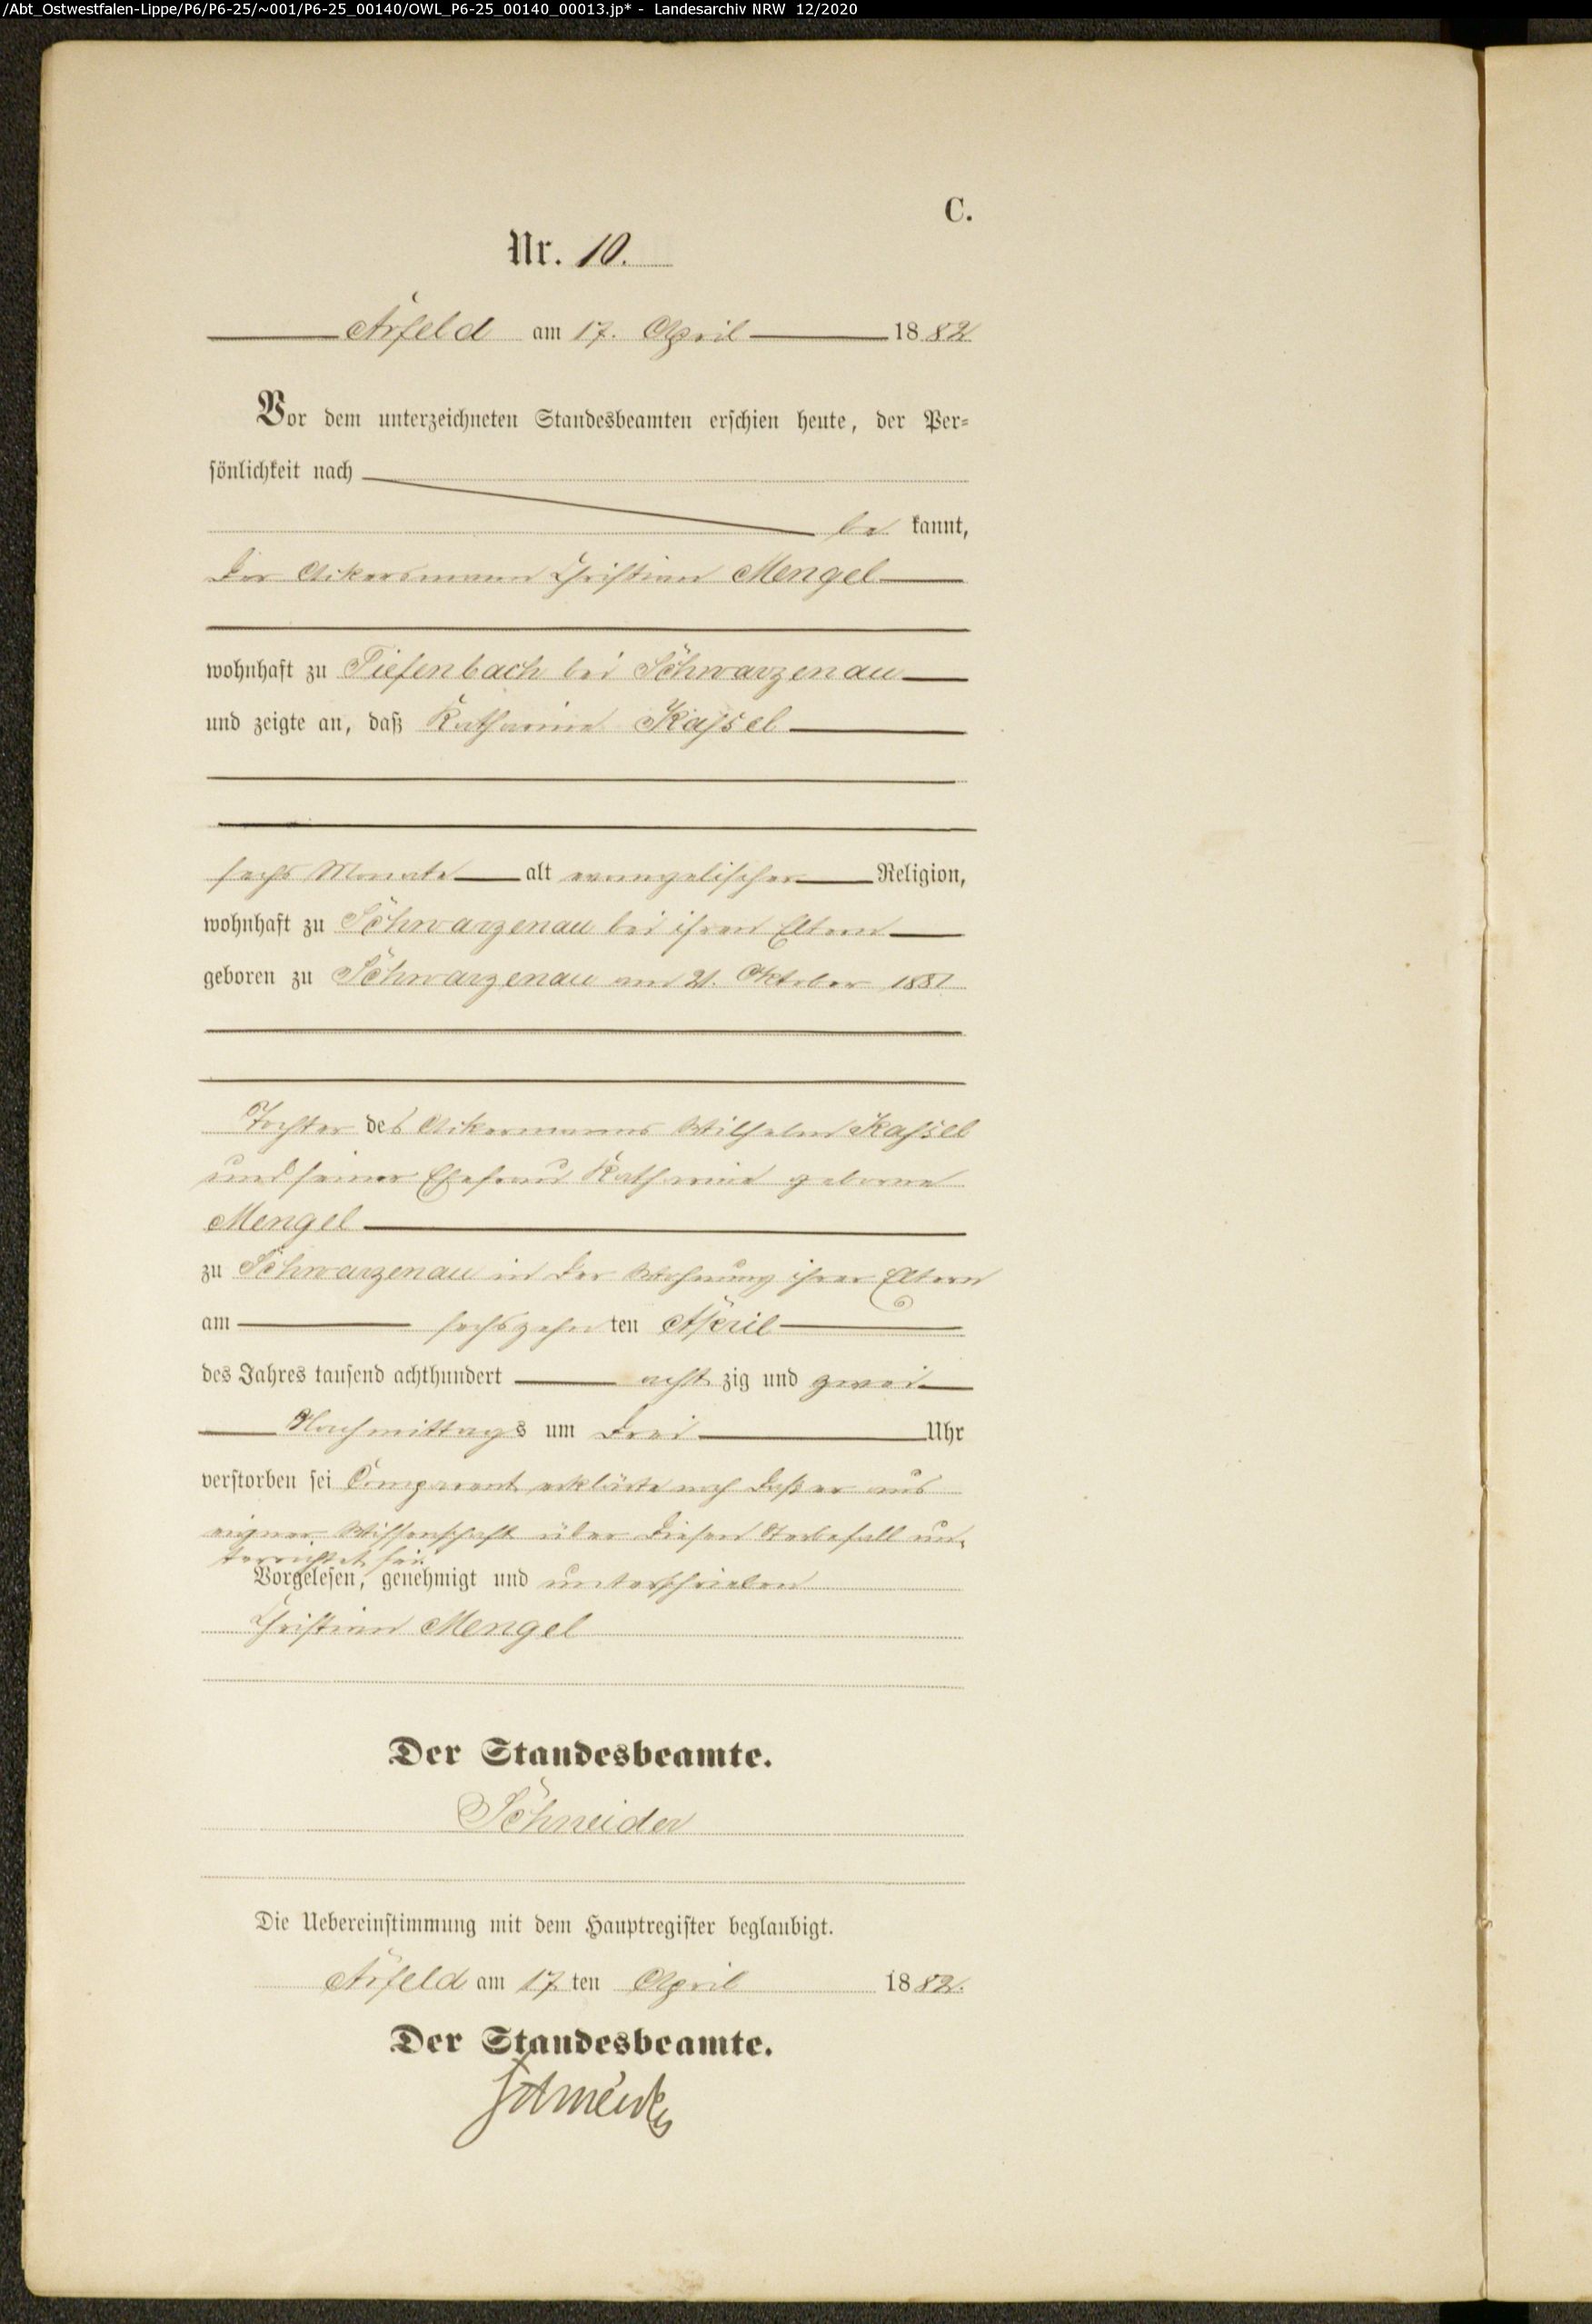 /Abt_Ostwestfalen-Lippe/P6/P6-25/~001/P6-25_00140/OWL_P6-25_00140_00013.jp* - Landesarchiv NRW 12/2020
C.
Nr. 10.
Arfeld am 17. April 1882
Vor dem unterzeichneten Standesbeamten erschien heute, der Per-
sönlichkeit nach
be kannt,
der Ackersmann Christian Mengel
wohnhaft zu Tiefenbach bei Schwarzenau
und zeigte an, daß Katharine Kassel
sechs Monate alt evangelischer Religion,
wohnhaft zu Schwarzenau bei ihren Eltern
geboren zu Schwarzenau am 21. Oktober 1881
Tochter des Ackermanns Wilhelm Kassel
und seiner Ehefrau Katharine geborne
Mengel
zu Schwarzenau in der Wohnung ihrer Eltern
am sechszehn ten April
des Jahres tausend achthundert acht zig und zwei
Nachmittags um drei Uhr
verstorben sei Comparent erklärte noch daß er aus
eigner Wissenschaft über diesen Sterbefall un-
terrichtet sei.
Vorgelesen, genehmigt und unterschrieben
Christian Mengel
Der Standesbeamte.
Schneider
Die Uebereinstimmung mit dem Hauptregister beglaubigt.
Arfeld am 17 ten April 1882.
Der Standesbeamte.
Schneider